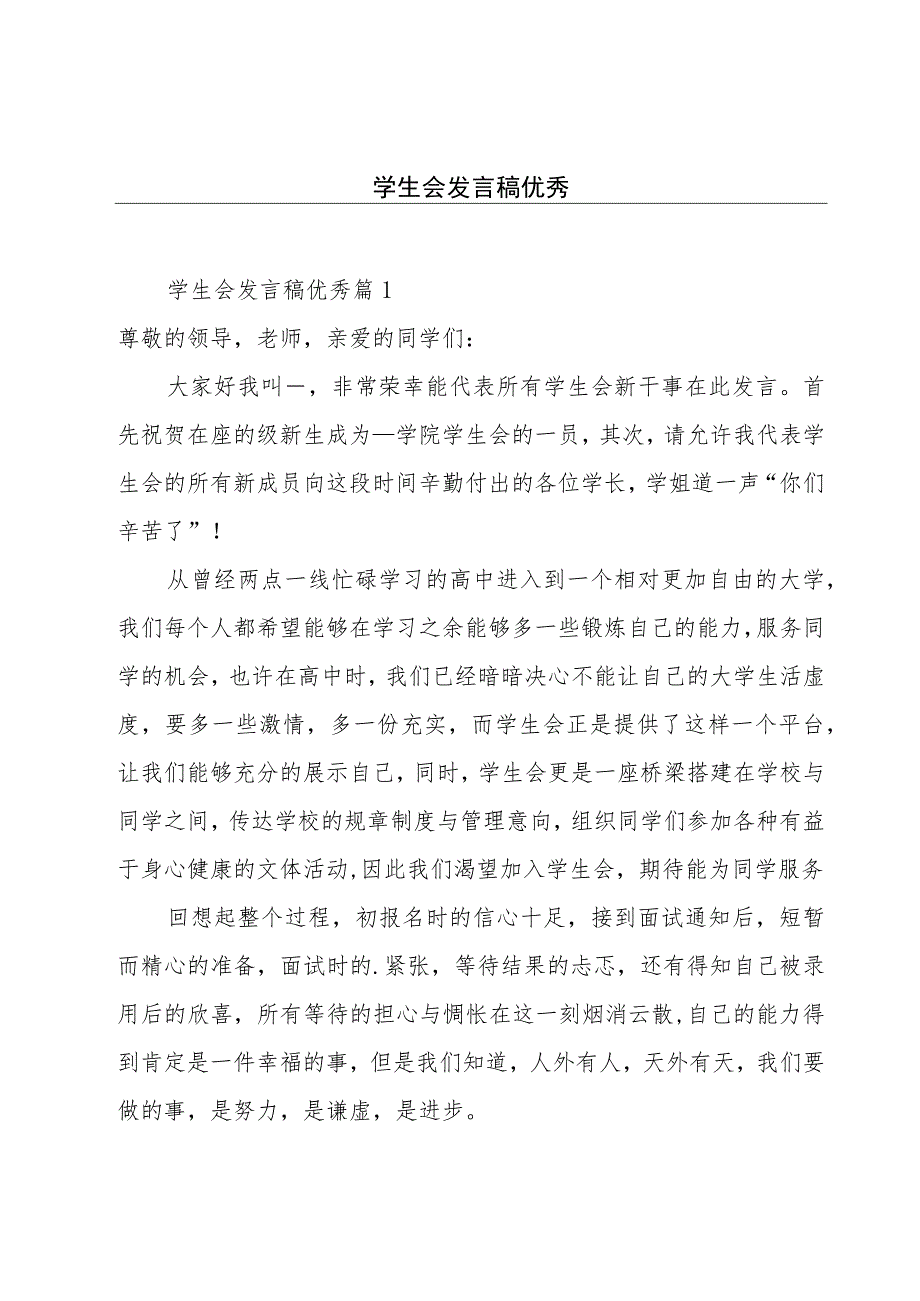 学生会发言稿优秀
学生会发言稿优秀篇1
尊敬的领导，老师，亲爱的同学们：
大家好我叫－，非常荣幸能代表所有学生会新干事在此发言。首
先祝贺在座的级新生成为—学院学生会的一员，其次，请允许我代表学
生会的所有新成员向这段时间辛勤付出的各位学长，学姐道一声“你们
辛苦了”！
从曾经两点一线忙碌学习的高中进入到一个相对更加自由的大学，
我们每个人都希望能够在学习之余能够多一些锻炼自己的能力，服务同
学的机会，也许在高中时，我们已经暗暗决心不能让自己的大学生活虚
度，要多一些激情，多一份充实，而学生会正是提供了这样一个平台，
让我们能够充分的展示自己，同时，学生会更是一座桥梁搭建在学校与
同学之间，传达学校的规章制度与管理意向，组织同学们参加各种有益
于身心健康的文体活动,因此我们渴望加入学生会，期待能为同学服务
回想起整个过程，初报名时的信心十足，接到面试通知后，短暂
而精心的准备，面试时的.紧张，等待结果的忐忑，还有得知自己被录
用后的欣喜，所有等待的担心与惆怅在这一刻烟消云散,自己的能力得
到肯定是一件幸福的事，但是我们知道，人外有人，天外有天，我们要
做的事，是努力，是谦虚，是进步。